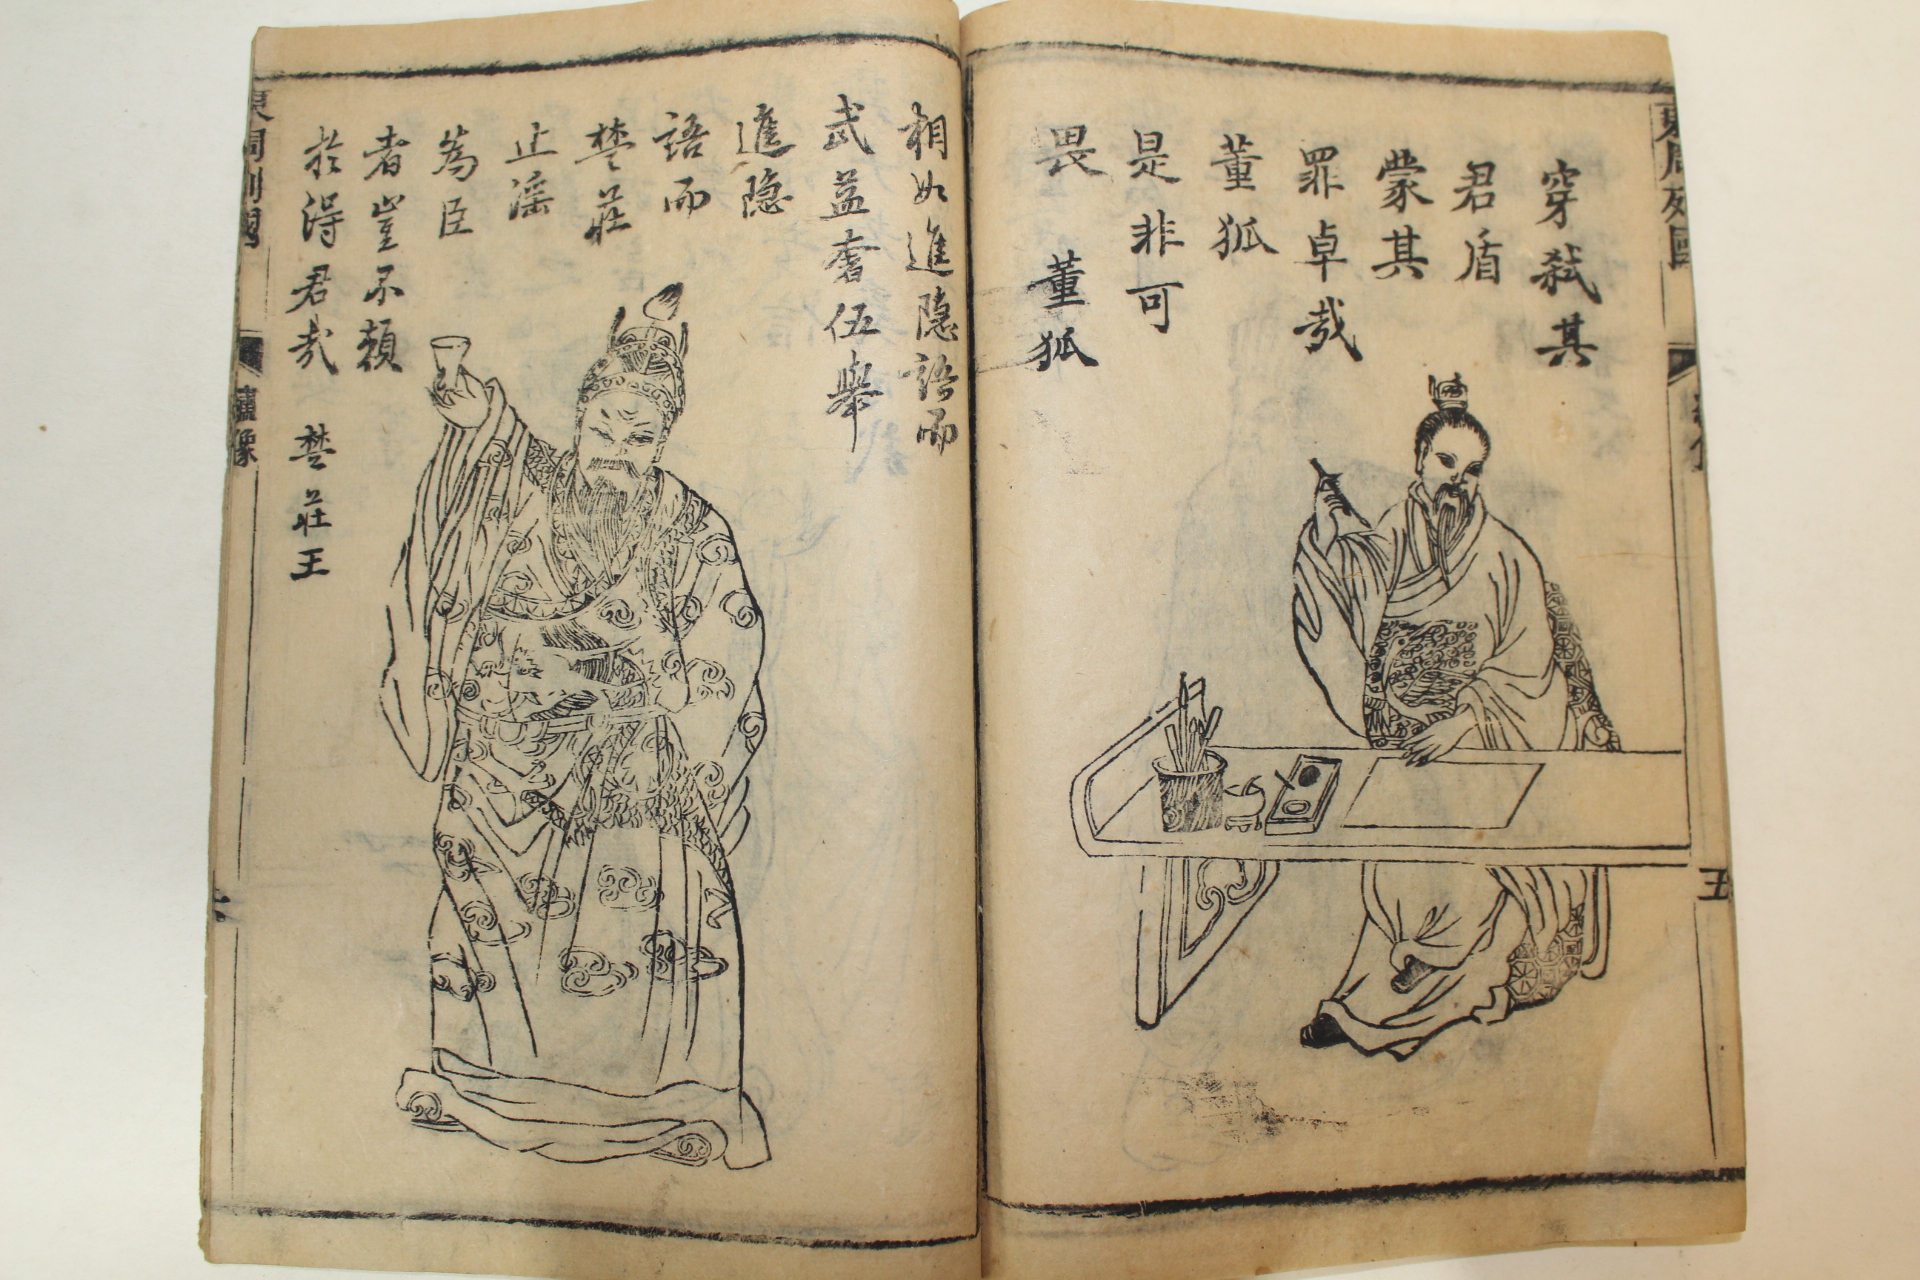 東周列國
穿弒其
君盾
蒙其
罪卓哉
董狐
是非可
畏
董狐
五
相如進隐語而
武益奢伍舉
進隐
語而
楚莊
止滛
為臣
者豈不頼
於淂君㢤
楚莊王
東周列國
繡像